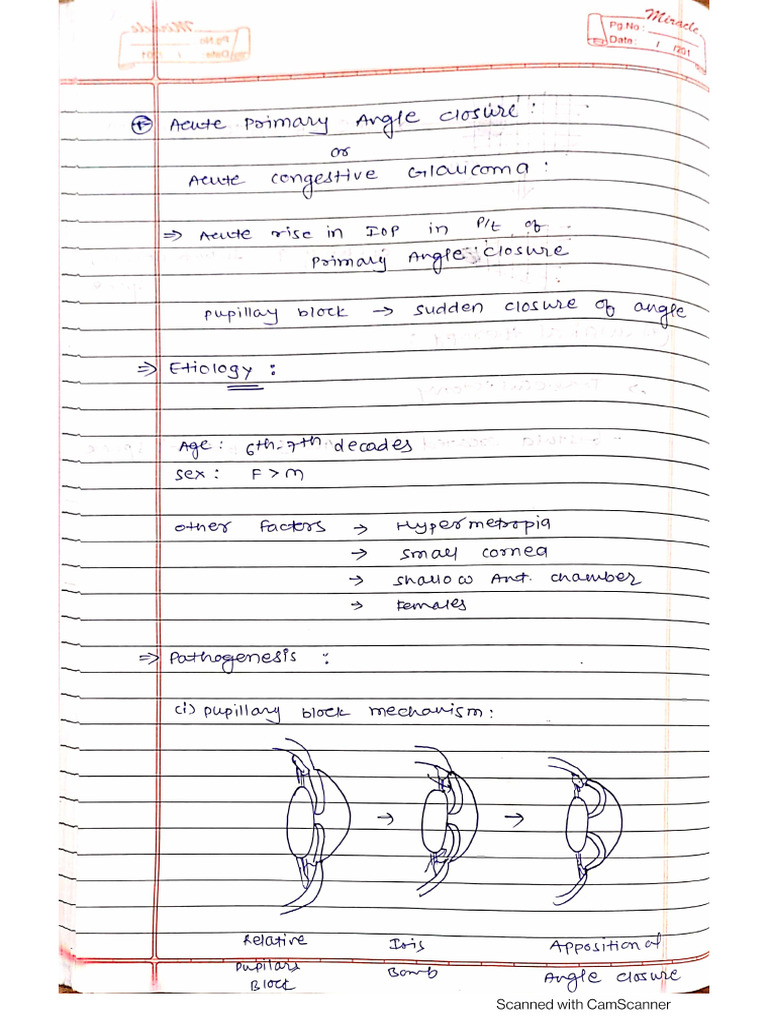 Miracle
Pg.No :
Date : / /201
Acute Primary Angle closure :
or
Acute congestive Glaucoma :
⇒ Acute rise in IOP in P/t of
Primary Angle closure
Pupillary block → sudden closure of angle
⇒ Etiology :
Age : 6th-7th decades
Sex : F > M
other factors → Hypermetropia
→ small cornea
→ shallow Ant. chamber
→ Females
⇒ Pathogenesis :
(i) Pupillary block mechanism :
→ →
Relative Iris Apposition of
Pupillary Bomb Angle closure
Block
Scanned with CamScanner